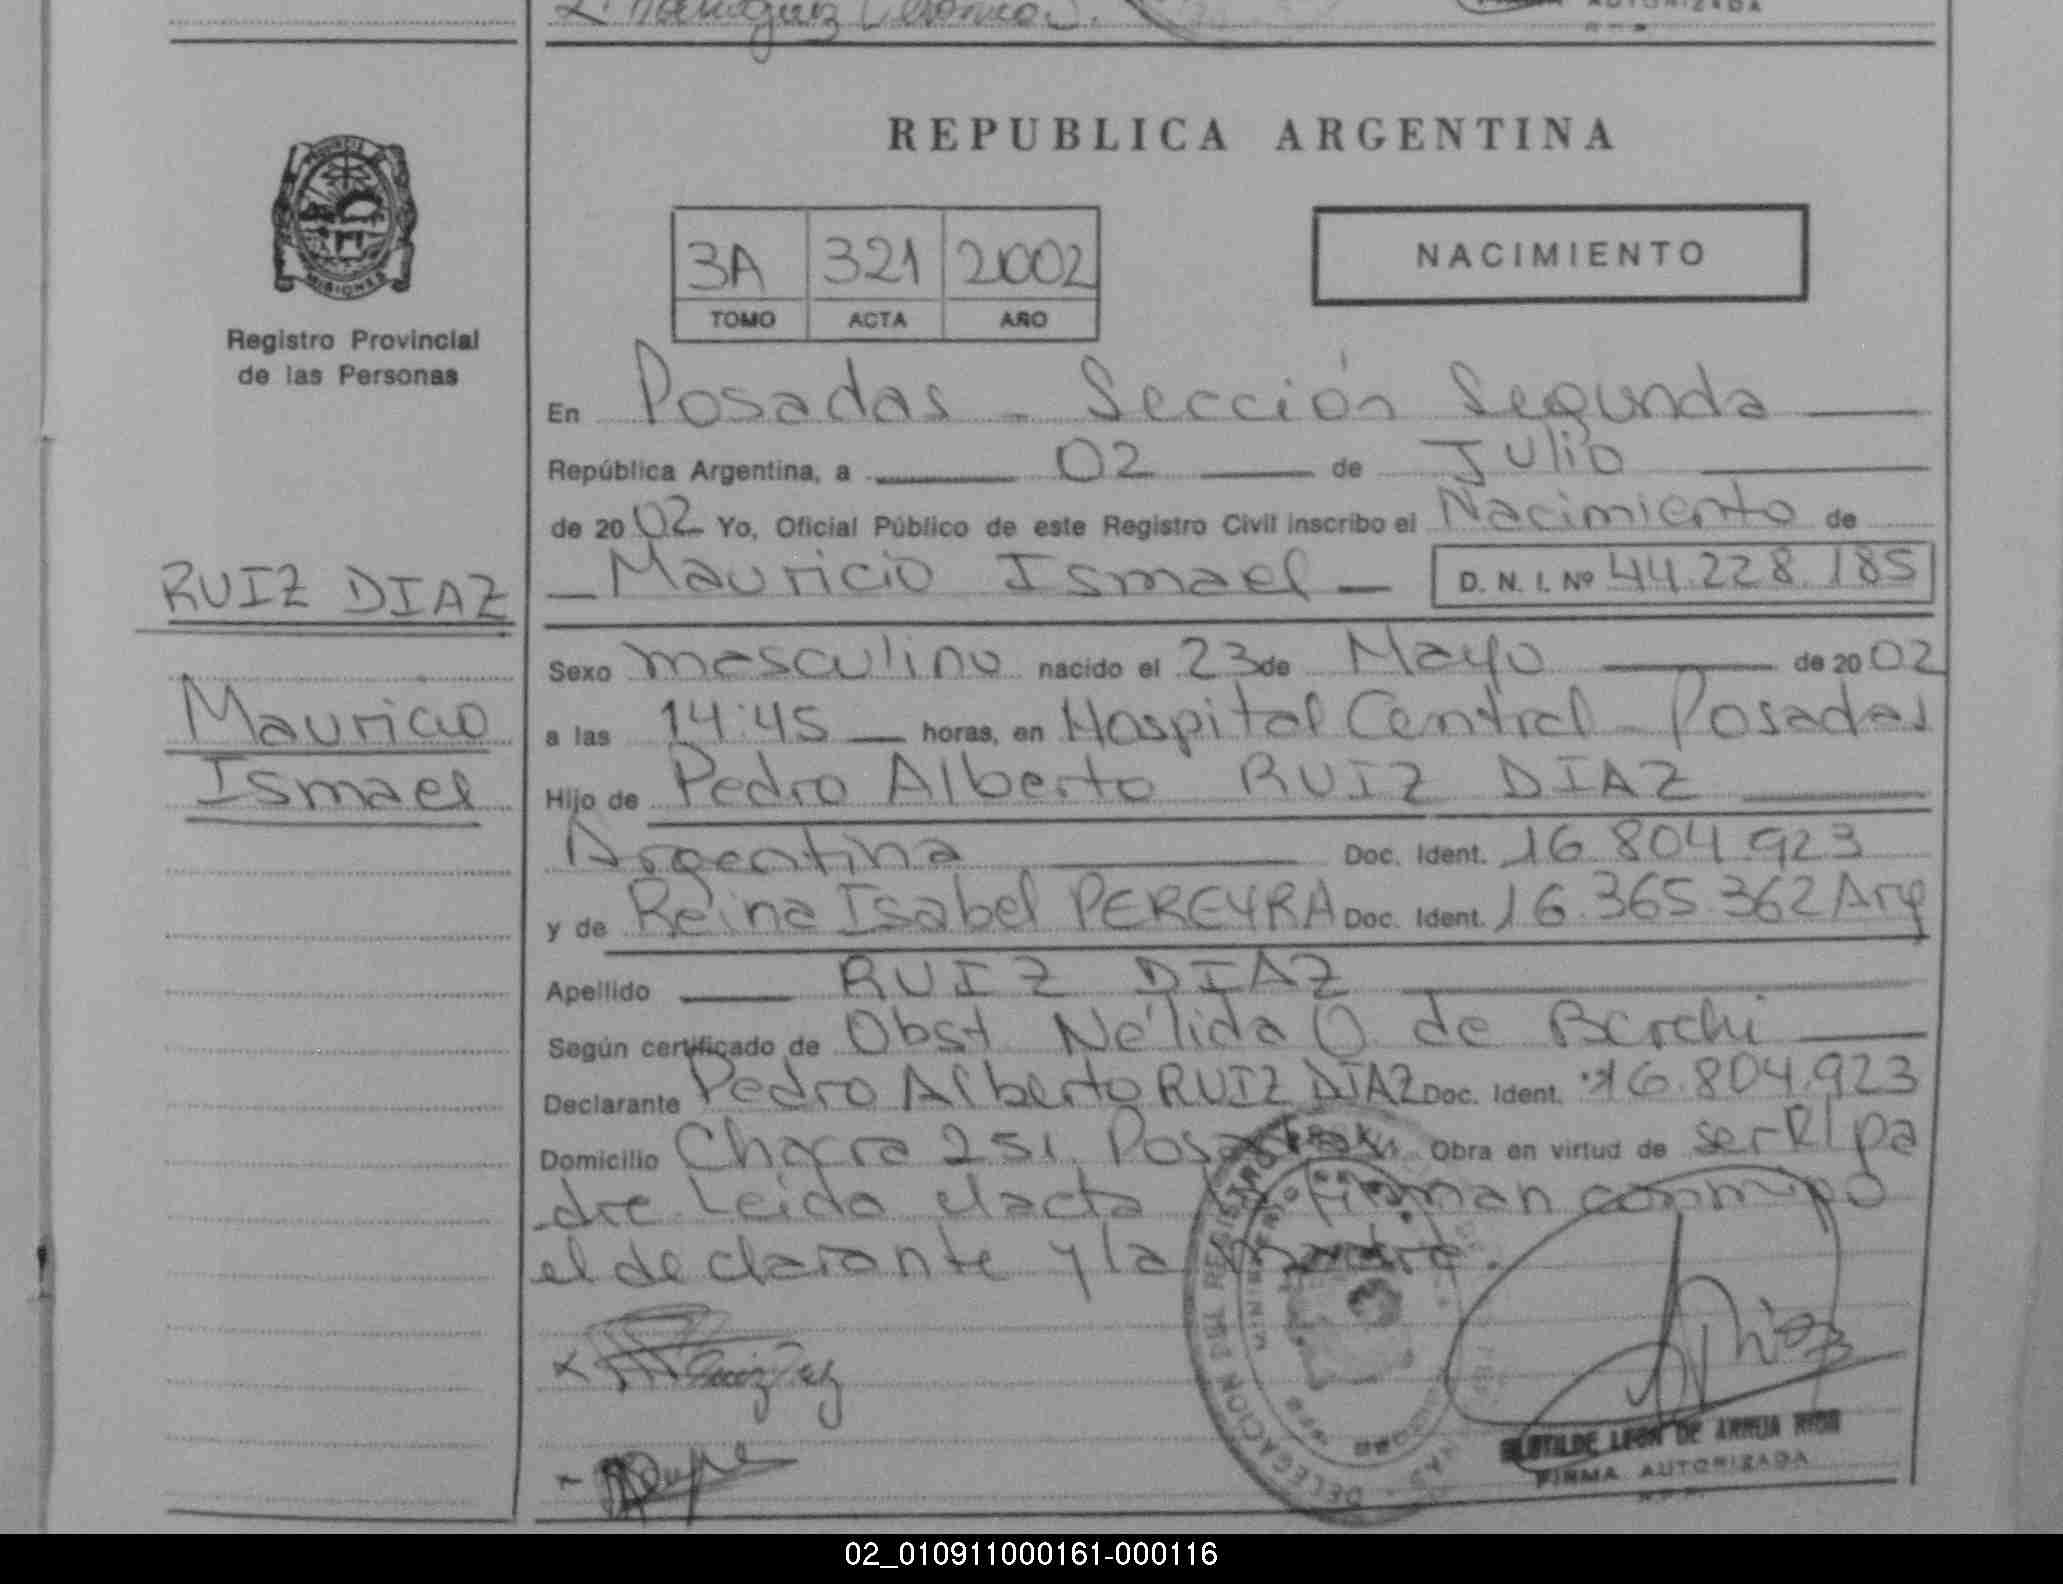 AUTORIZADA
REPUBLICA ARGENTINA
PROVINCIA DE
MISIONES
Registro Provincial
de las Personas
3A 321 2002
TOMO ACTA AÑO
NACIMIENTO
En Posadas - Sección Segunda
República Argentina, a 02 de Julio
de 2002 Yo, Oficial Público de este Registro Civil inscribo el Nacimiento de
RUIZ DIAZ
Mauricio Ismael
D. N. I. Nº 44.228.185
Mauricio
Ismael
Sexo masculino nacido el 23 de Mayo de 2002
a las 14:45 horas, en Hospital Central - Posadas
Hijo de Pedro Alberto RUIZ DIAZ
Argentina Doc. Ident. 16.804.923
y de Reina Isabel PEREYRA Doc. Ident. 16.365.362 Arg
Apellido RUIZ DIAZ
Según certificado de Obst Nélida O. de Berchi
Declarante Pedro Alberto RUIZ DIAZ Doc. Ident. 16.804.923
Domicilio Chacra 251 Posadas Obra en virtud de ser el pa
dre Leida el acta firman conmigo
el declarante y la madre.
DELEGACION DEL REGISTRO
CLOTILDE LEON DE ARRUA RIOS
FIRMA AUTORIZADA
02_010911000161-000116